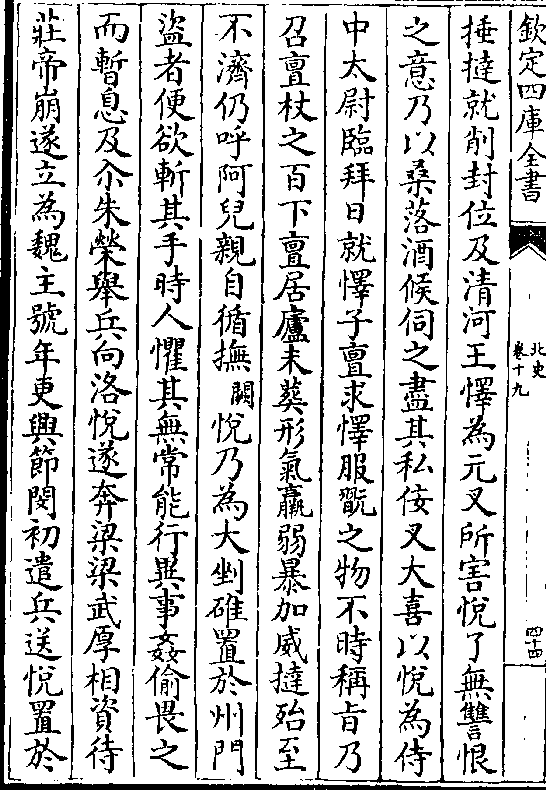 欽定四庫全書
北史
卷十九
四十四
捶撻就削封位及清河王懌為元叉所害悅了無讐恨
之意乃以桑落酒候伺之盡其私佞叉大喜以悅為侍
中太尉臨拜日就懌子亶求懌服翫之物不時稱旨乃
召亶杖之百下亶居廬未葬形氣羸弱暴加威撻殆至
不濟仍呼阿兒親自循撫闕悅乃為大剉碓置於州門
盜者便欲斬其手時人懼其無常能行異事姦偷畏之
而暫息及尒朱榮舉兵向洛悅遂奔梁梁武厚相資待
莊帝崩遂立為魏主號年更興節閔初遣兵送悅置於